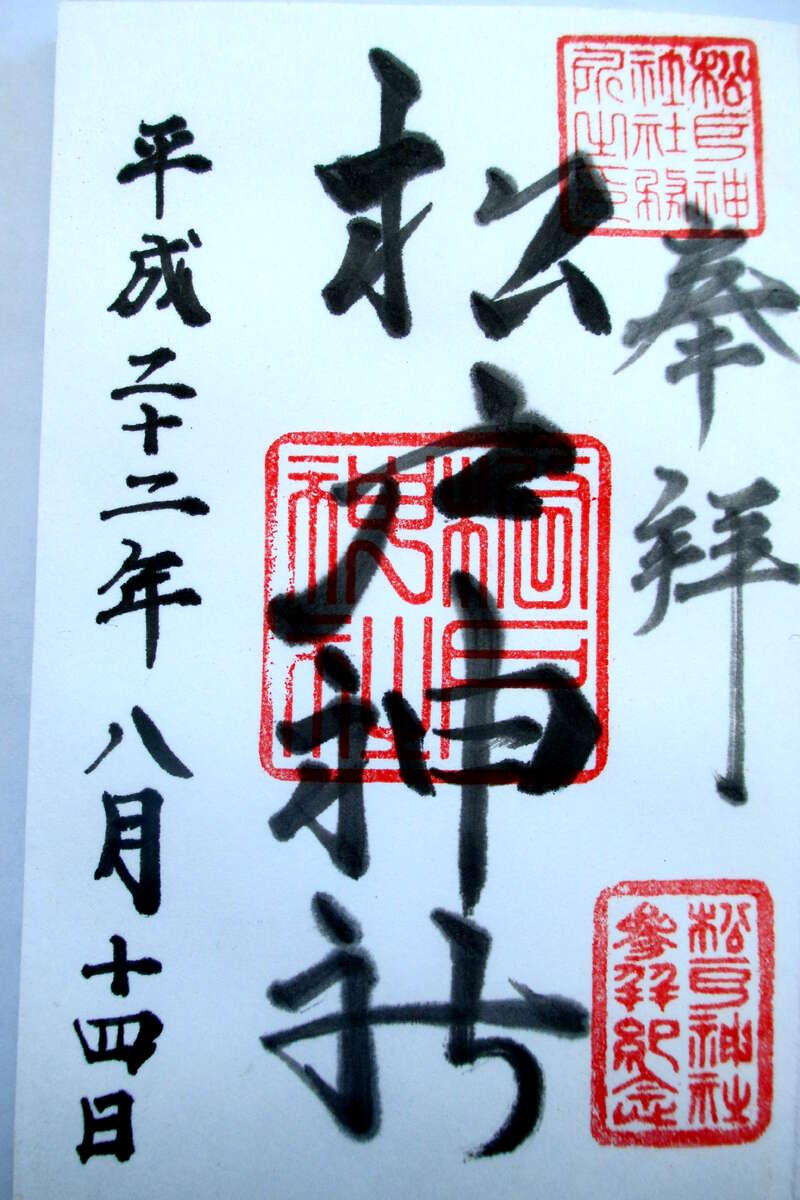 奉拝
松戸神社
平成二十二年八月十四日
松戸神
社社務
所之印
松戸
神社
松戸神社
参拝紀念